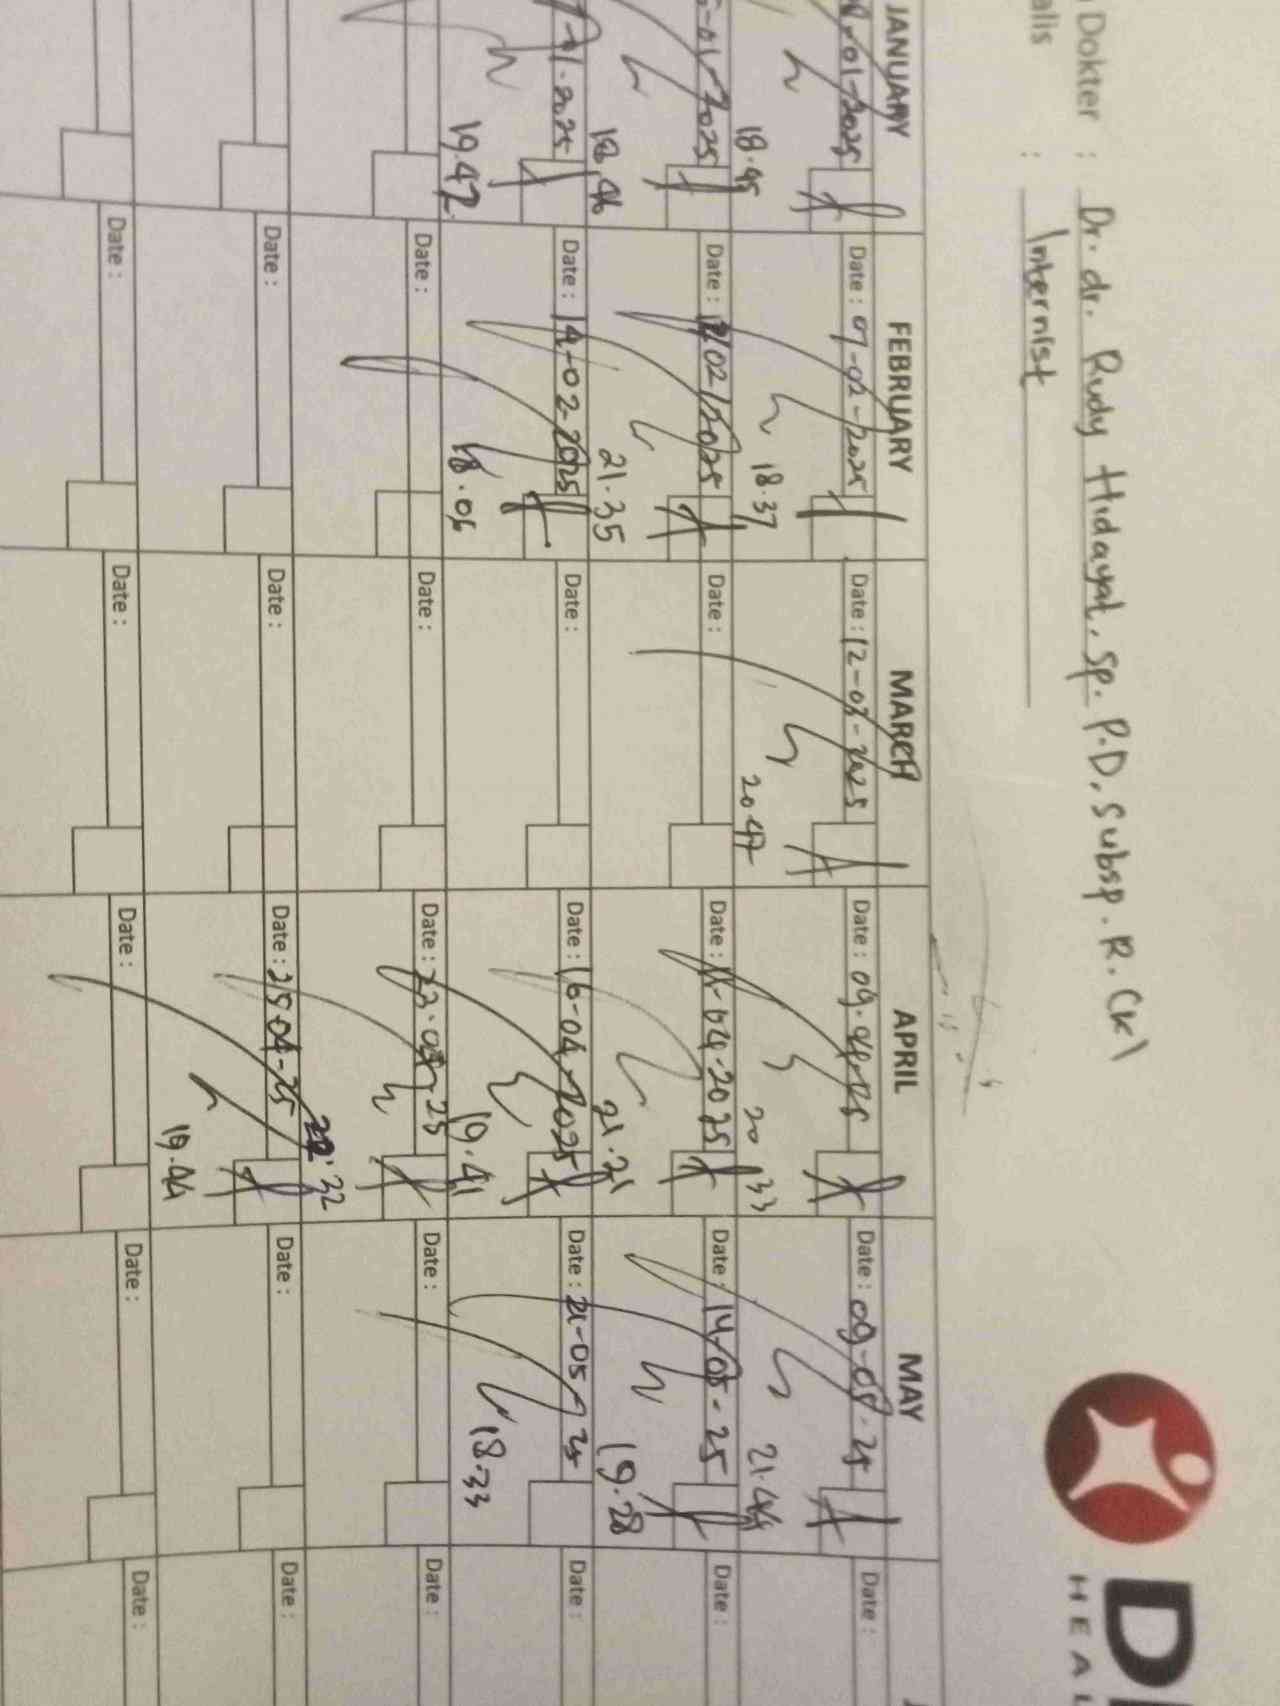 Dokter : Dr. dr. Rudy Hidayat, Sp. P.D, Subsp. R. (K)
alis : Internist
D
HEAL
JANUARY FEBRUARY MARCH APRIL MAY
01-2025 Date : 07-02-2025 Date : 12-03-2025 Date : 09-04-25 Date : 09-05-25 Date :
18.45 18.37 20.47 20.33 21.44
-01-2025 Date : 12/02/2025 Date : Date : 11-04-2025 Date : 14-05-25 Date :
18.46 21.35 21.21 19.28
01.2025 Date : 14-02-2025 Date : Date : 16-04-2025 Date : 21-05-25 Date :
19.42 18.06 19.41 18.33
Date : Date : Date : 23-04-25 Date : Date :
22.32
Date : Date : Date : 25-04-25 Date : Date :
19.44
Date : Date : Date : Date : Date :